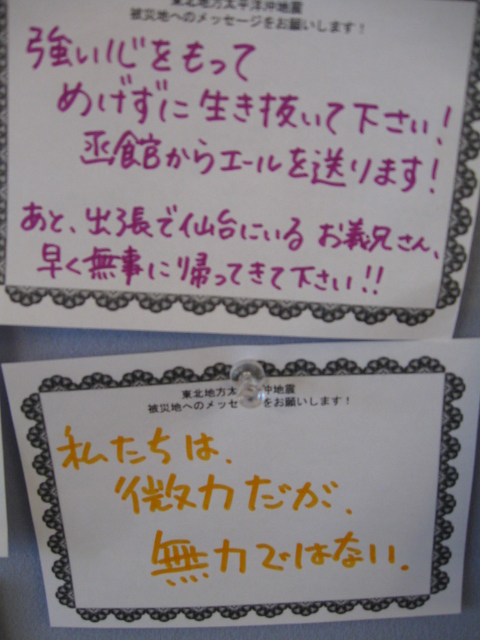 東北地方太平洋沖地震
被災地へのメッセージをお願いします!
強い心をもって
めげずに生き抜いて下さい!
函館からエールを送ります!
あと、出張で仙台にいるお義兄さん、
早く無事に帰ってきて下さい!!
東北地方太 沖地震
被災地へのメッセージをお願いします!
私たちは、
微力だが、
無力ではない。